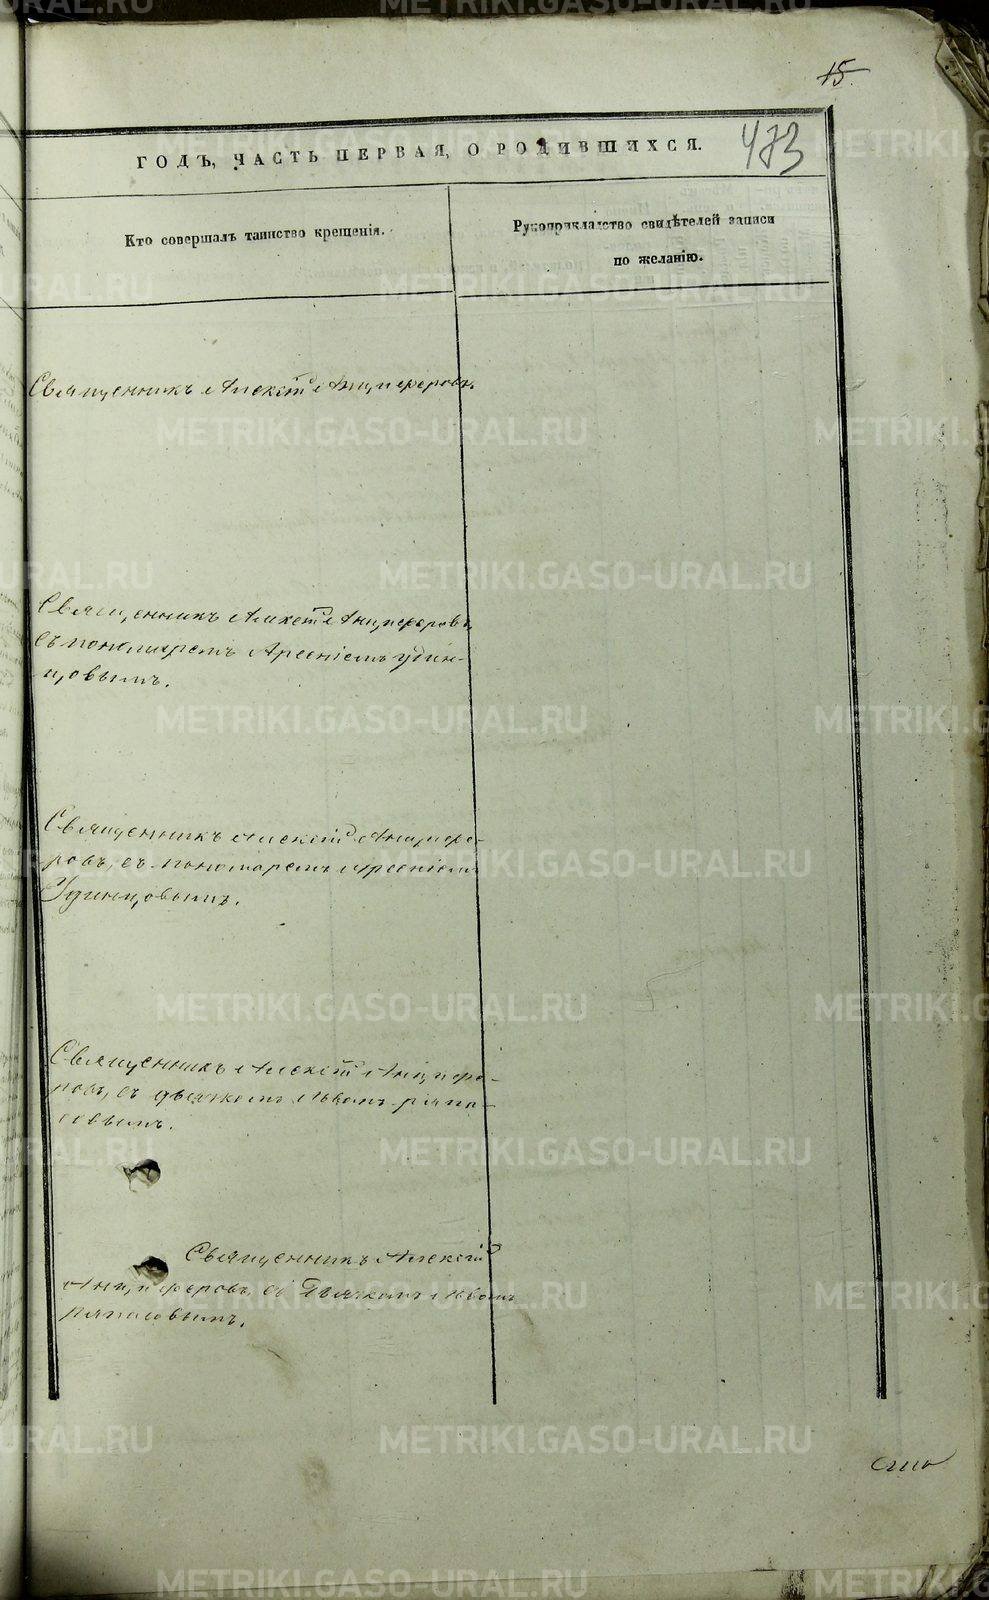 15.
473
ГОДЪ, ЧАСТЬ ПЕРВАЯ, О РОДИВШИХСЯ.
Кто совершалъ таинство крещенія.
Рукоприкладство свидѣтелей записи
по желанію.
Священникъ Алексій Анциферовъ.
Священникъ Алексій Анциферовъ,
съ пономаремъ Арсеніемъ Удин-
цовымъ.
Священникъ Алексій Анцифе-
ровъ, съ пономаремъ Арсеніемъ
Удинцовымъ.
Священникъ Алексій Анцифе-
ровъ, съ дьячкомъ Львомъ
Священникъ Алексій
Анциферовъ, съ Дьячкомъ Львомъ
METRIKI.GASO-URAL.RU